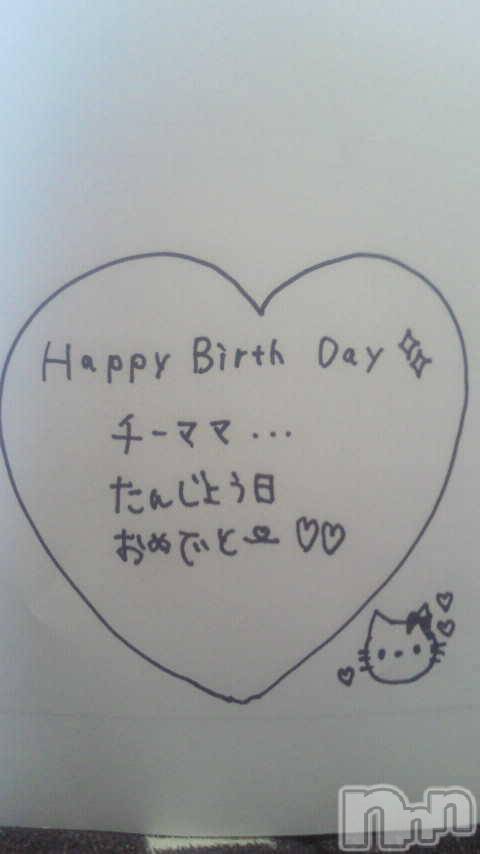 Happy Birth Day
チーママ...
たんじょう日
おめでとー♡♡
nnn